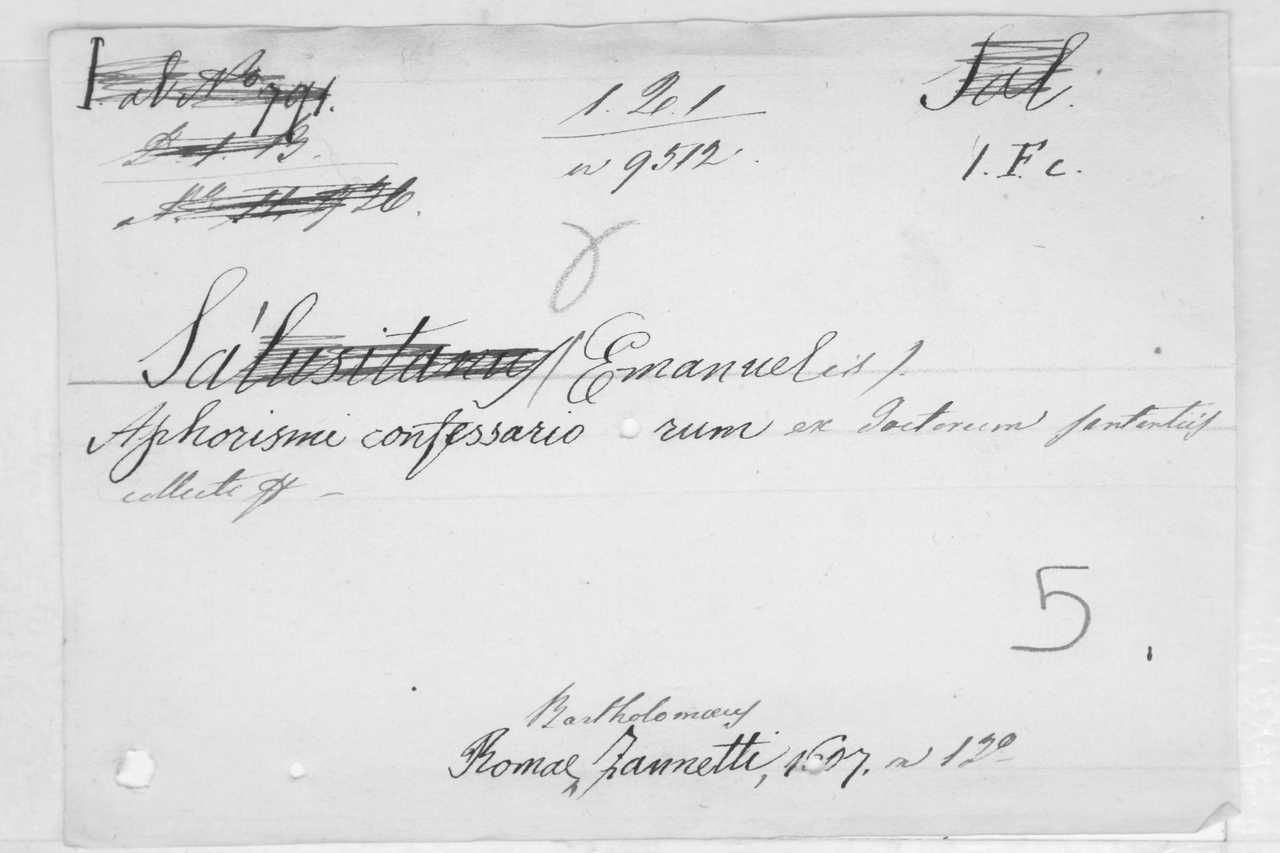 ab Nº 791.
D. 1. 13.
1. 2. 1
n 9512.
Sal.
1. Fc.
Sá lusitanus (Emanuelis).
Aphorismi confessario rum ex doctorum sententiis
collecti
5.
Bartholomæus
Romae, Zannetti, 1607. n 12º